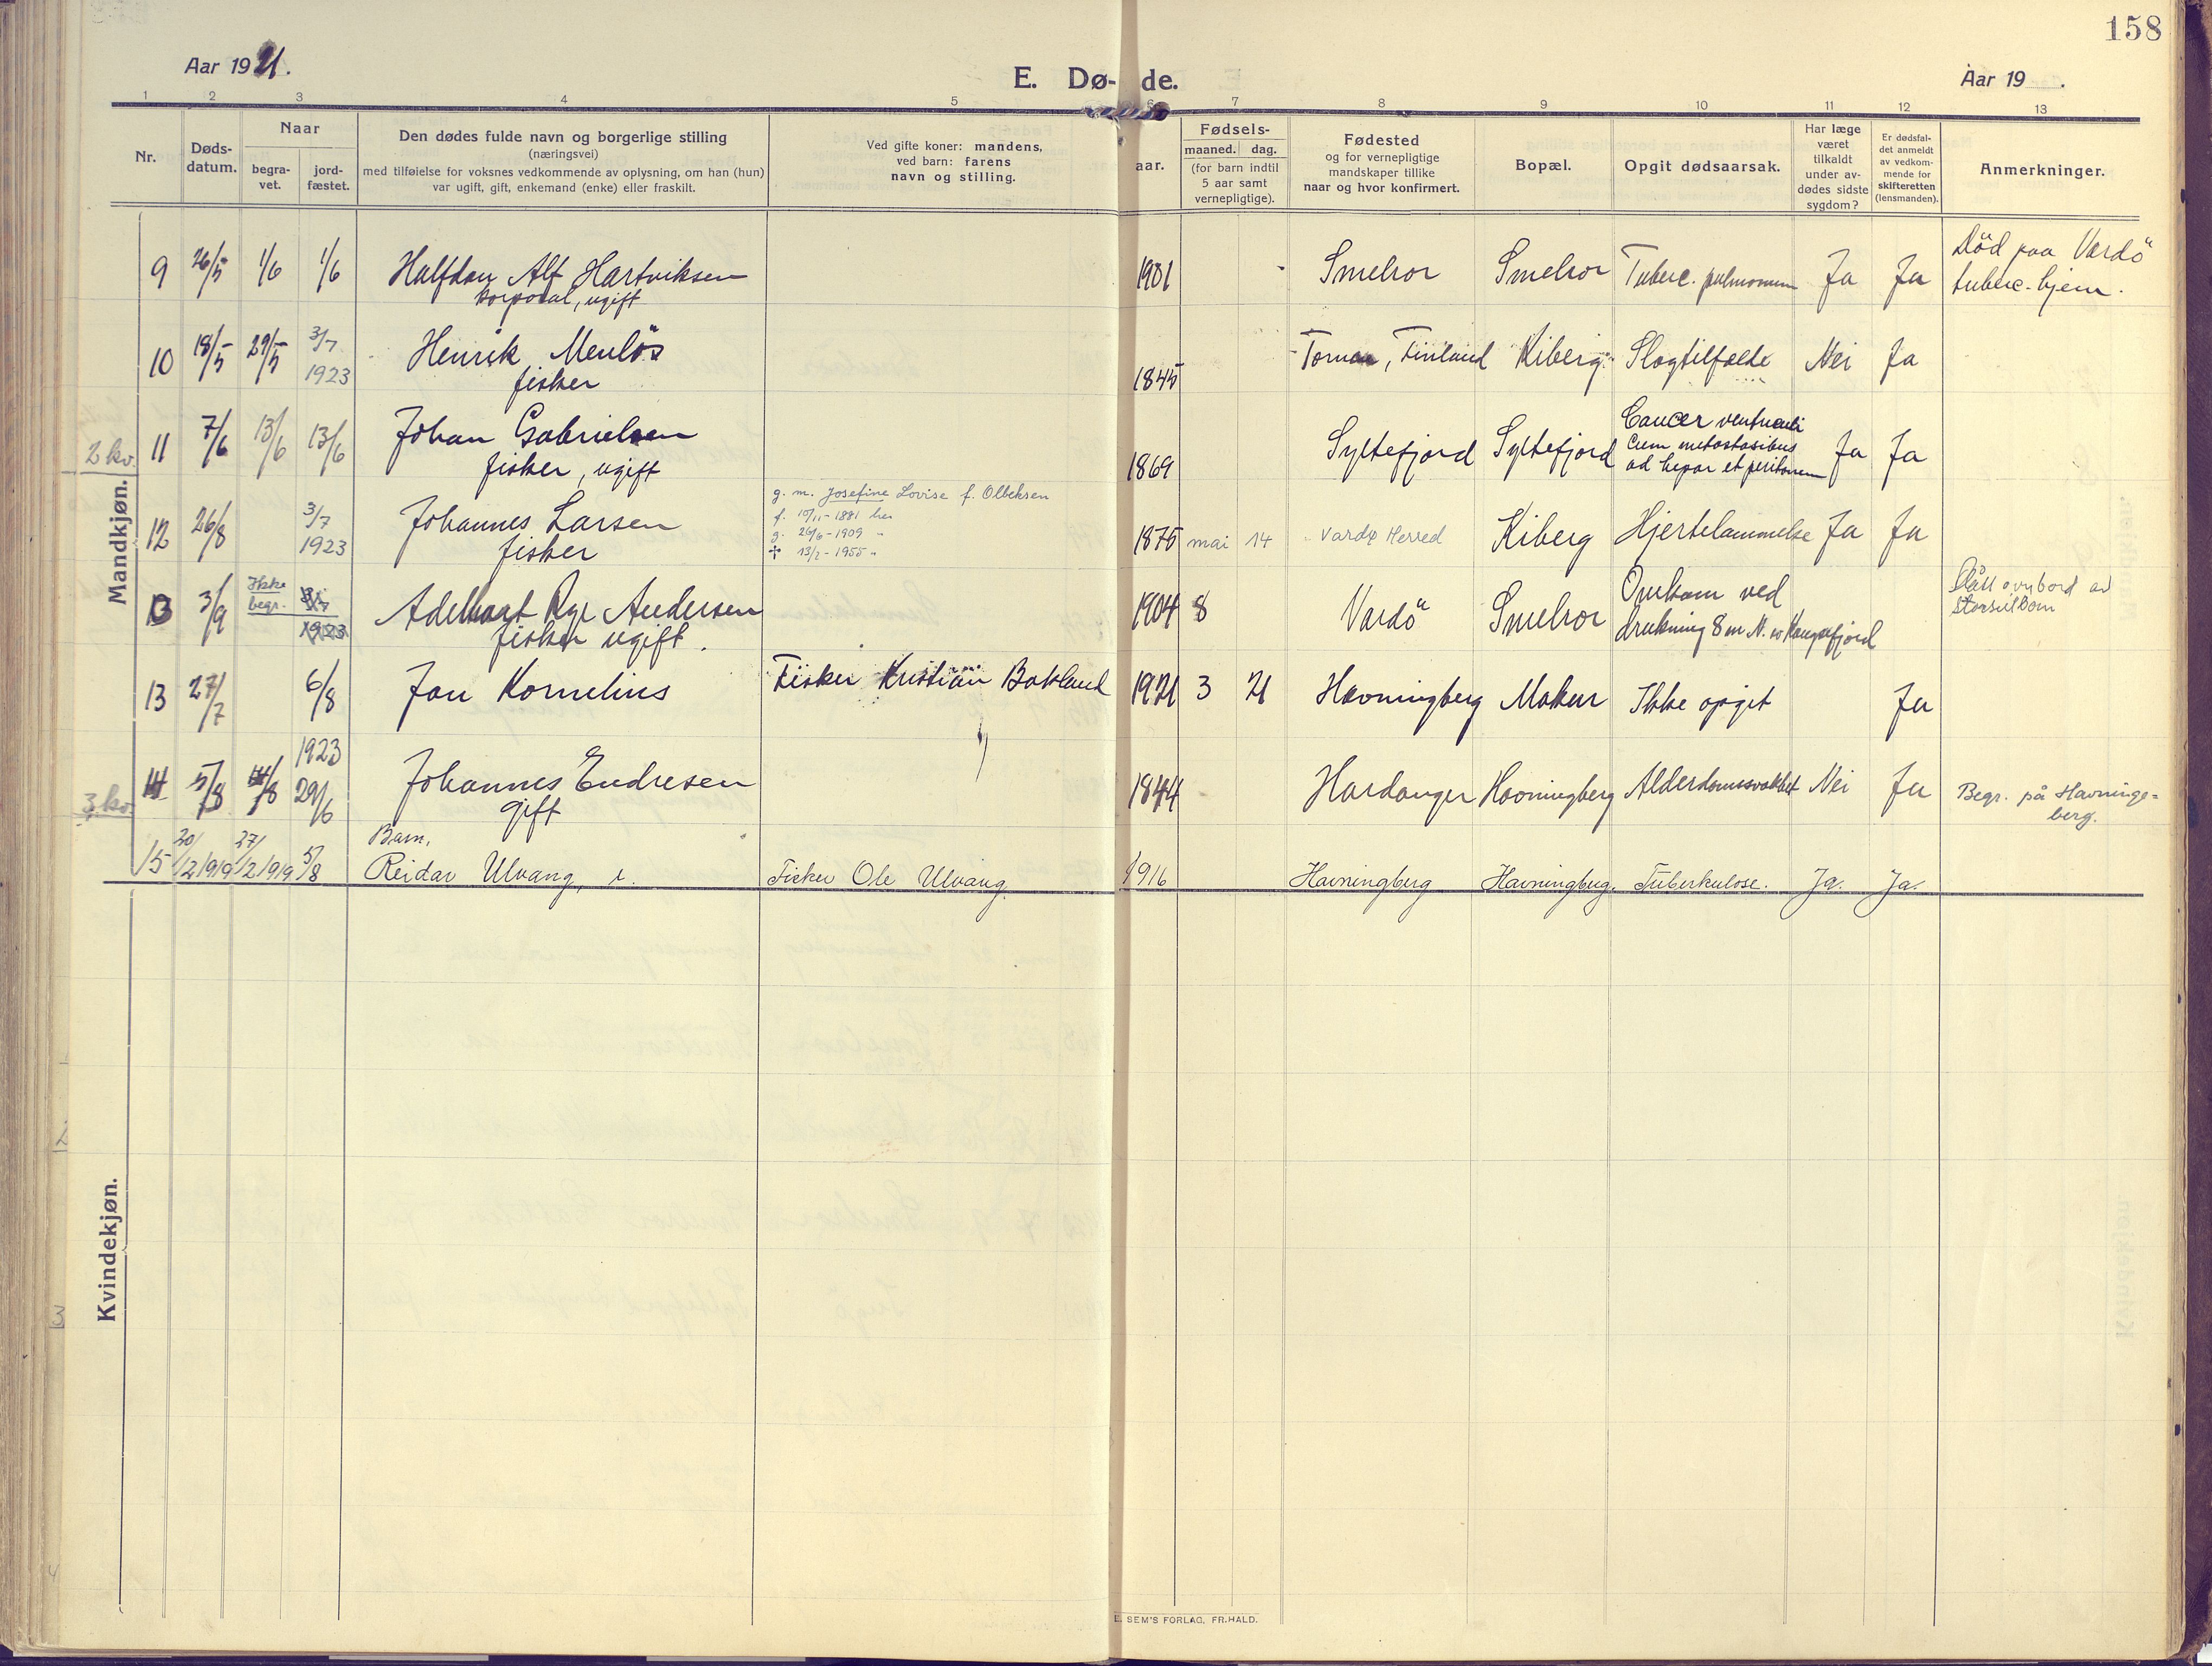 158
Aar 1921.
E. Dø- de.
Aar 19 .
1 2 3 4 5 6 7 8 9 10 11 12 13
Nr.
Døds-
datum.
Naar
begra-
vet.
jord-
fæstet.
Den dødes fulde navn og borgerlige stilling
(næringsvei)
med tilføielse for voksnes vedkommende av oplysning, om han (hun)
var ugift, gift, enkemand (enke) eller fraskilt.
Ved gifte koner: mandens,
ved barn: farens
navn og stilling.
aar.
Fødsels-
maaned. dag.
(for barn indtil
5 aar samt
vernepligtige).
Fødested
og for vernepligtige
mandskaper tillike
naar og hvor konfirmert.
Bopæl.
Opgit dødsaarsak.
Har læge
været
tilkaldt
under av-
dødes sidste
sygdom?
Er dødsfal-
det anmeldt
av vedkom-
mende for
skifteretten
(lensmanden).
Anmerkninger.
Mandkjøn.
9 26/5 1/6 1/6 Halfdan Alf Hartviksen 1901 Smelror Smelror Tuberc. pulmonum Ja Ja Död paa Vardö
korporal, ugift tuberc.-hjem.
10 18/5 29/5 3/7 1923 Henrik Menlös 1845 Tornea, Finland Kiberg Slagtilfælde Nei Ja
fisker
2 kv. 11 7/6 13/6 13/6 Johan Gabrielsen 1869 Syltefjord Syltefjord Cancer ventriculi Ja Ja
fisker, ugift cum metastasibus
ad hepar et peritoneum
12 26/8 3/7 1923 Johannes Larsen 1875 mai 14 Vardø Herred Kiberg Hjertelammelse Ja Ja
fisker
g. m. Josefine Lovise f. Olbeksen
f. 10/11-1881 her
g. 26/6-1909 "
✝ 13/2-1955 "
13 3/9 Ikke begr. 3/7 1923 Andersen 1904 8 Vardö Smelror Omkom ved
fisker ugift. drukning 8 m N. av Kongsfjord
overbord av
13 27/7 6/8 Jon Kornelius Fisker Kristian Bakland 1921 3 21 Havningberg Makur Ikke opgit Ja
3 kv. 14 5/8 14/8 1923 29/6 Johannes Endresen 1844 Hardanger Havningberg Alderdomssvakhet Nei Ja Begr. på Havninge-
gift berg.
Barn,
15 20/2 1919 27/2 1919 5/8 Reidar Ulvang, Fisker Ole Ulvang. 1916 Havningberg Havningberg. Tuberkulose. Ja. Ja.
Kvindekjøn.
E. SEM'S FORLAG, FR.HALD.